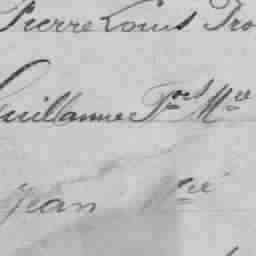 Pierre Louis Fro
Guillaume Fçois Mie
Jean